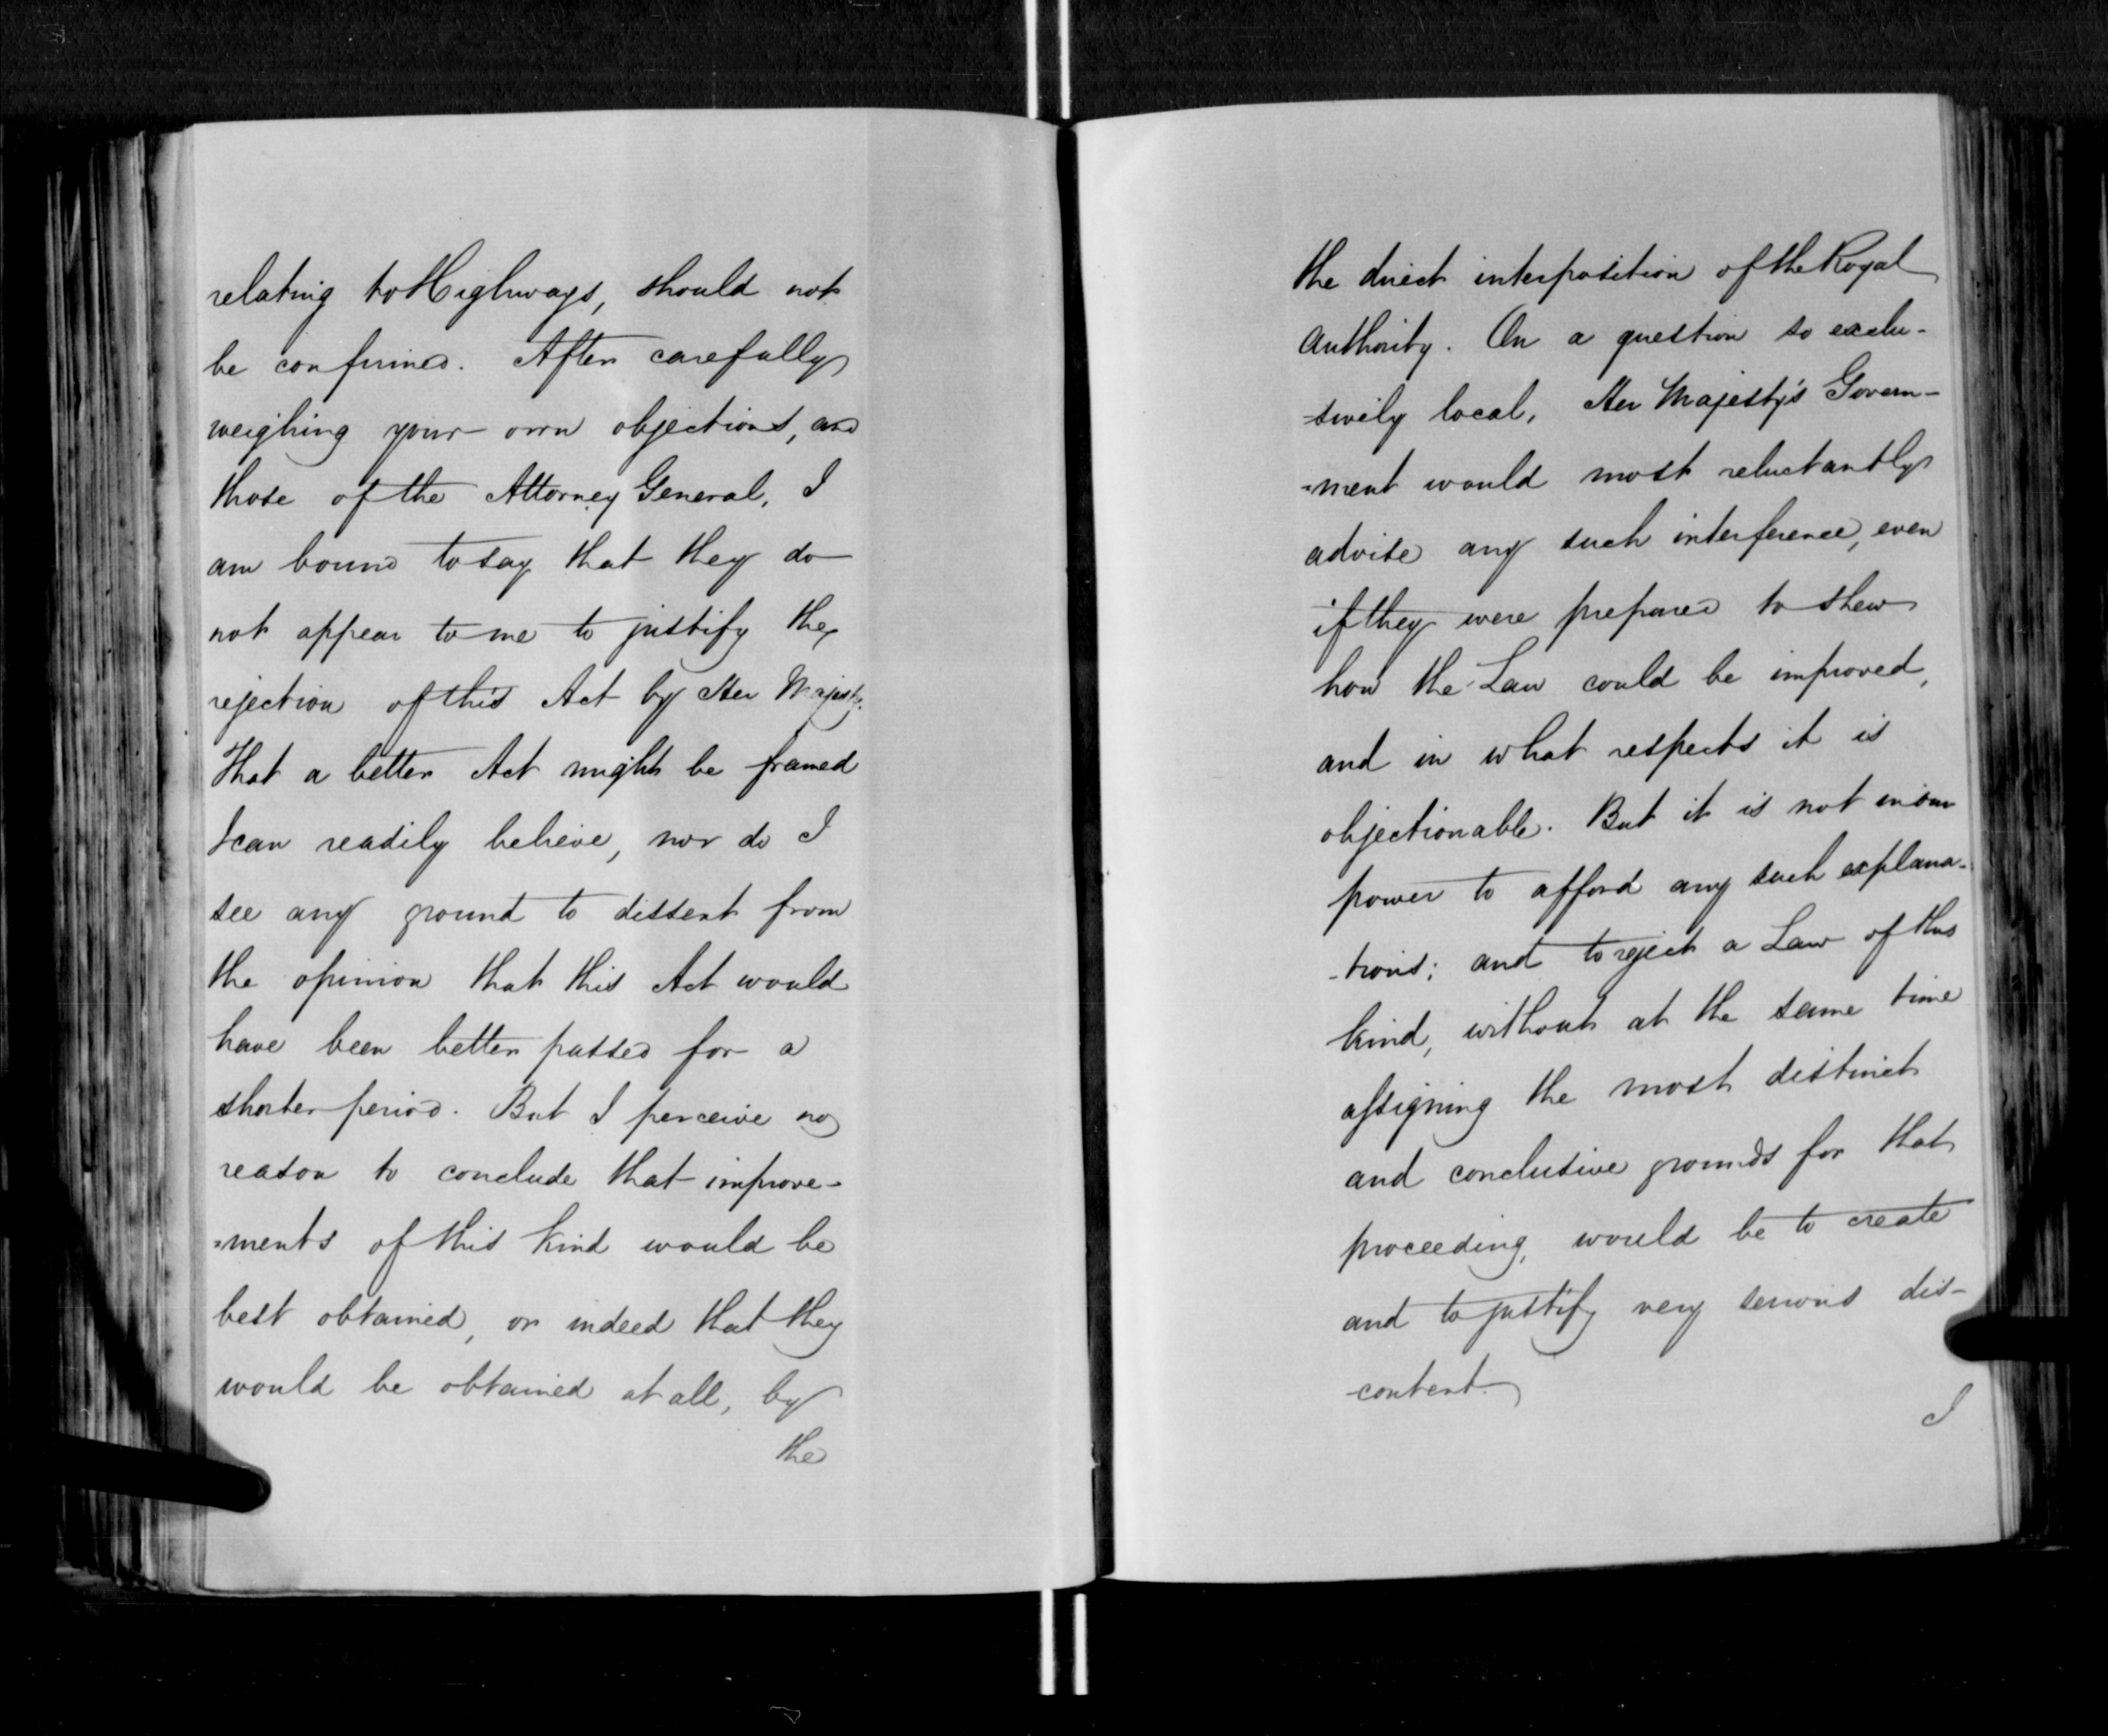 relating to Highways, should not
be confirmed. After carefully
weighing your own objections, and
those of the Attorney General, I
am bound to say that they do
not appear to me to justify the
rejection of this Act by Her Majesty.
That a better Act might be framed
I can readily believe, nor do I
see any ground to dissent from
the opinion that this Act would
have been better passed for a
shorter period. But I perceive no
reason to conclude that improve-
=ments of this kind would be
best obtained, or indeed that they
would be obtained at all, by
the
the direct interposition of the Royal
Authority. On a question so exclu-
-sively local, Her Majesty's Govern-
=ment would most reluctantly
advise any such interference, even
if they were prepared to shew
how the Law could be improved,
and in what respects it is
objectionable. But it is not in our
power to afford any such explana-
-tions; and to reject a Law of this
kind, without at the same time
assigning the most distinct
and conclusive grounds for that
proceeding, would be to create
and to justify very serious dis-
-content.
I